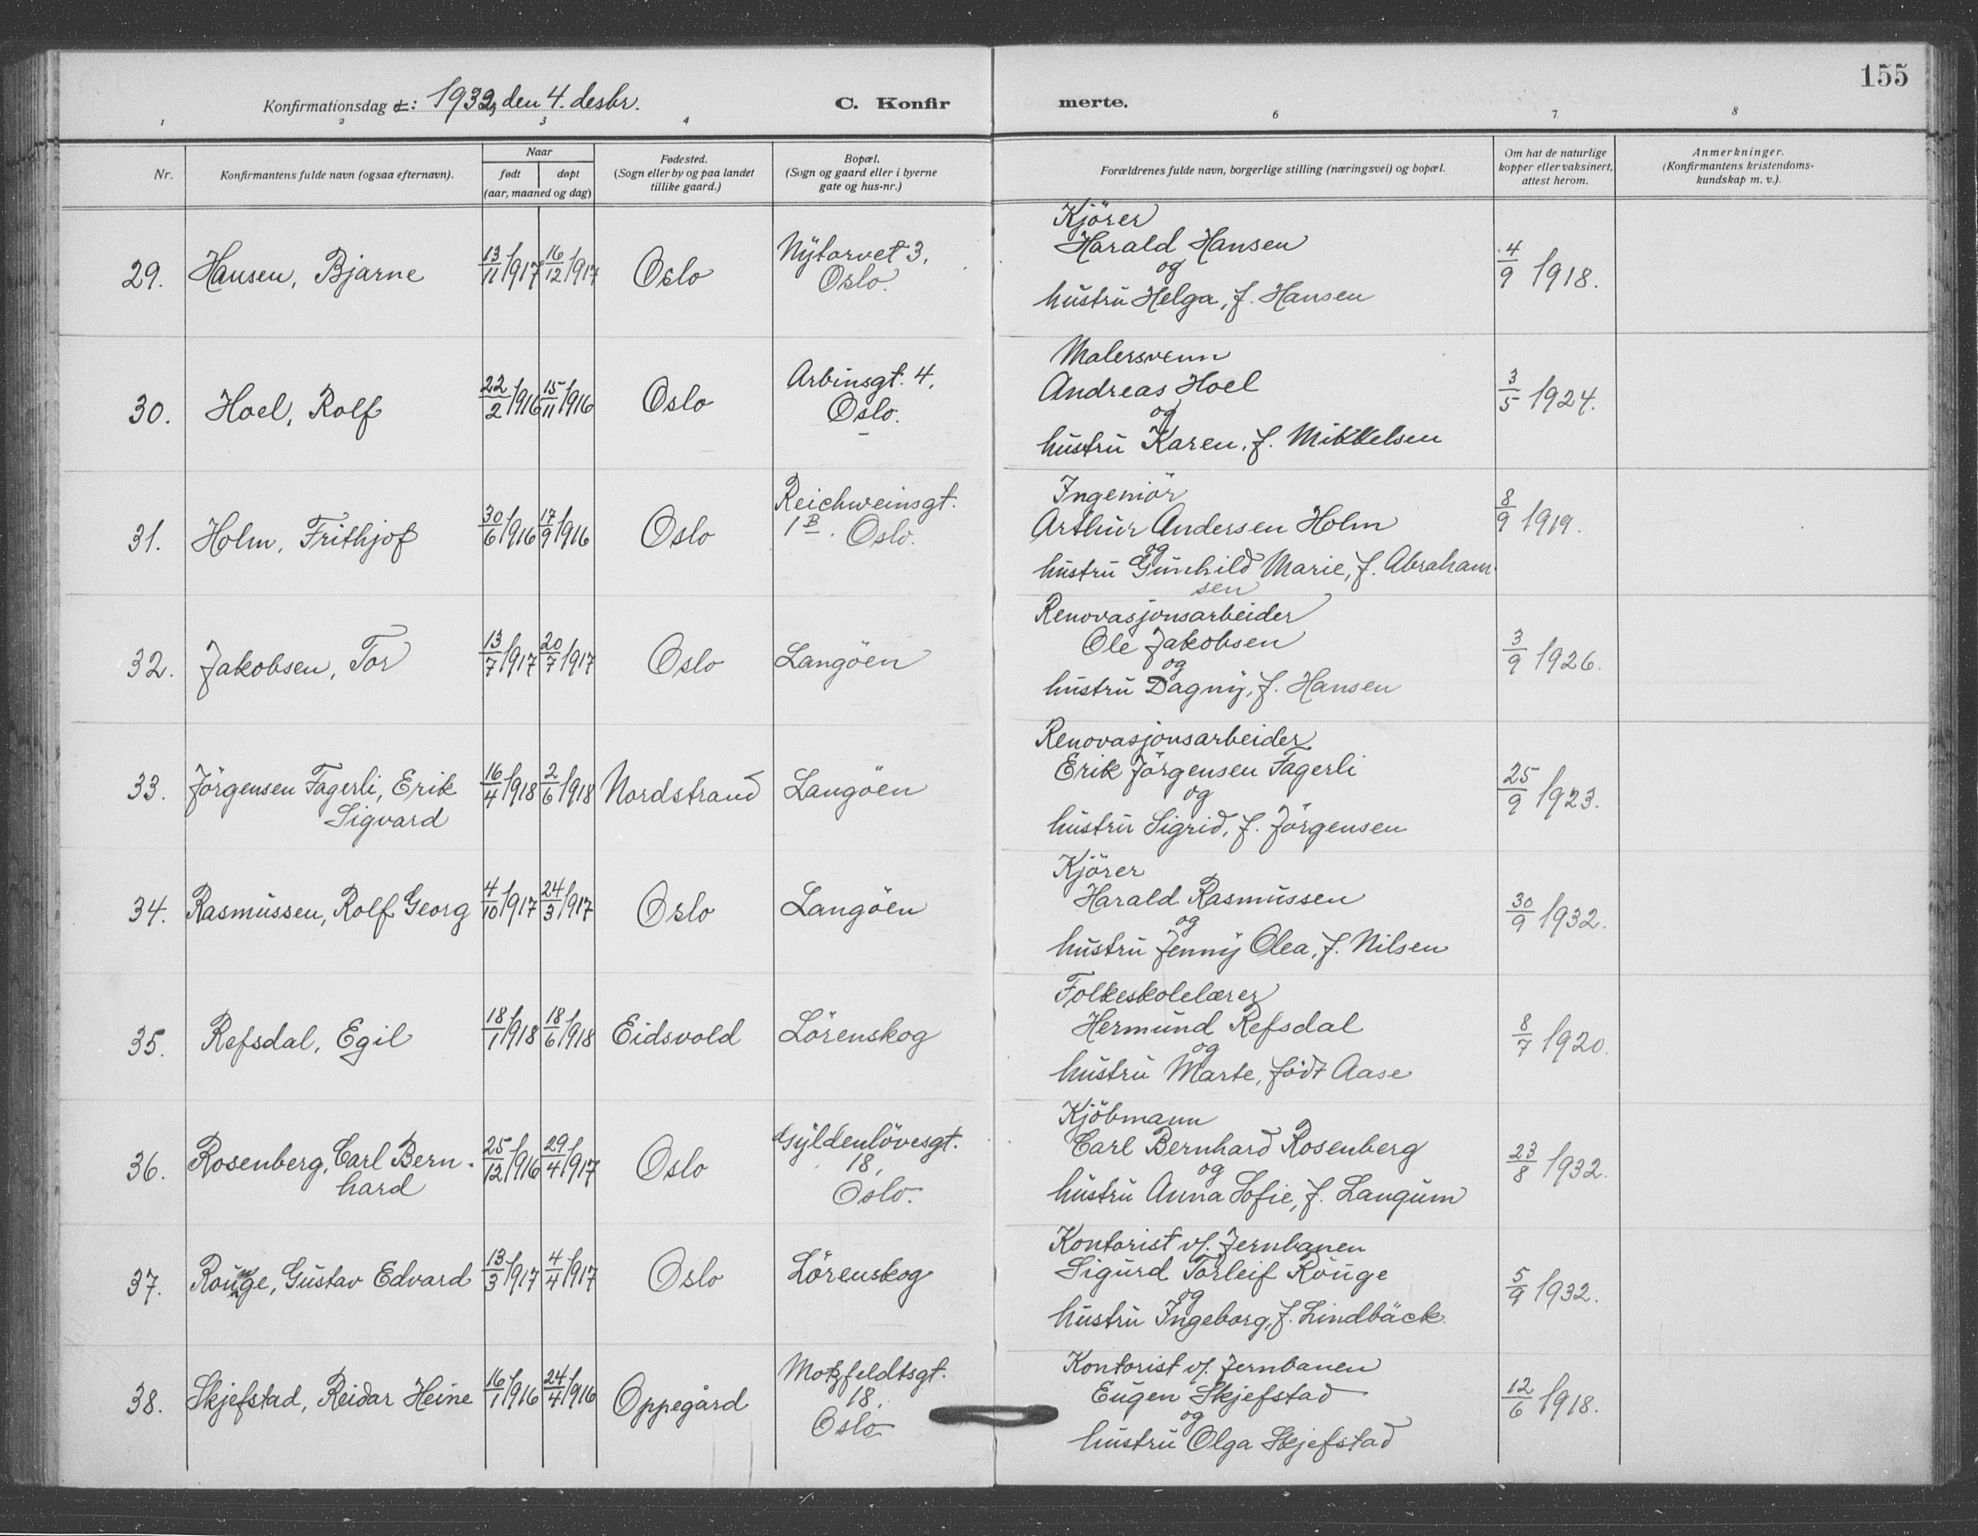 155
Konfirmationsdag: 1932, den 4. desbr. C. Konfirmerte.
1 2 3 4 6 7 8
Nr.
Konfirmantens fulde navn (ogsaa efternavn).
Naar
født døpt
(aar, maaned og dag)
Fødested.
(Sogn eller by og paa landet
tillike gaard.)
Bopæl.
(Sogn og gaard eller i byerne
gate og hus-nr.)
Forældrenes fulde navn, borgerlige stilling (næringsvei) og bopæl.
Om hat de naturlige
kopper eller vaksinert,
attest herom.
Anmerkninger.
(Konfirmantens kristendoms-
kundskap m. v.).
29. Hansen, Bjarne 13/11 1917 16/12 1917 Oslo
Nytorvet 3.
Oslo.
Kjörer
Harald Hansen
og
hustru Helga, f. Hansen
4/9 1918.
30. Hoel, Rolf 22/2 1916 15/11 1916 Oslo
Arbinsgt. 4.
Oslo.
Malersvenn
Andreas Hoel
og
hustru Karen, f. Mikkelsen
3/5 1924.
31. Holm, Frithjof 30/6 1916 17/9 1916 Oslo
Reichweinsgt.
1B. Oslo.
Ingeniör
Arthur Andersen Holm
og
hustru Gunhild Marie, f. Abraham-
sen
8/9 1919.
32. Jakobsen, Tor 13/7 1917 20/7 1917 Oslo Langöen
Renovasjonsarbeider
Ole Jakobsen
og
hustru Dagny, f. Hansen
3/9 1926.
33. Jörgensen Fagerli, Erik
Sigvard
16/4 1918 2/6 1918 Nordstrand Langöen
Renovasjonsarbeider
Erik Jörgensen Fagerli
og
hustru Sigrid, f. Jörgensen
25/9 1923.
34. Rasmussen, Rolf Georg 4/10 1917 24/3 1917 Oslo Langöen
Kjörer
Harald Rasmussen
og
hustru Jenny Olea, f. Nilsen
30/9 1932.
35. Refsdal, Egil 18/1 1918 18/6 1918 Eidsvold Lörenskog
Folkeskolelærer
Hermund Refsdal
og
hustru Marte, födt Aase
8/7 1920.
36. Rosenberg, Carl Bern-
hard
25/12 1916 29/4 1917 Oslo
Gyldenlövesgt.
18,
Oslo.
Kjöbmann
Carl Bernhard Rosenberg
og
hustru Anna Sofie, f. Langum
23/8 1932.
37. Rouge, Gustav Edvard 13/3 1917 4/4 1917 Oslo Lörenskog
Kontorist v/. Jernbanen
Sigurd Torleif Rouge
og
hustru Ingeborg, f. Lindbäck.
5/9 1932.
38. Skjefstad, Reidar Heine 16/1 1916 24/4 1916 Oppegård
Motzfeldtsgt.
18.
Oslo
Kontorist v/. Jernbanen
Eugen Skjefstad
og
hustru Olga Skjefstad
12/6 1918.